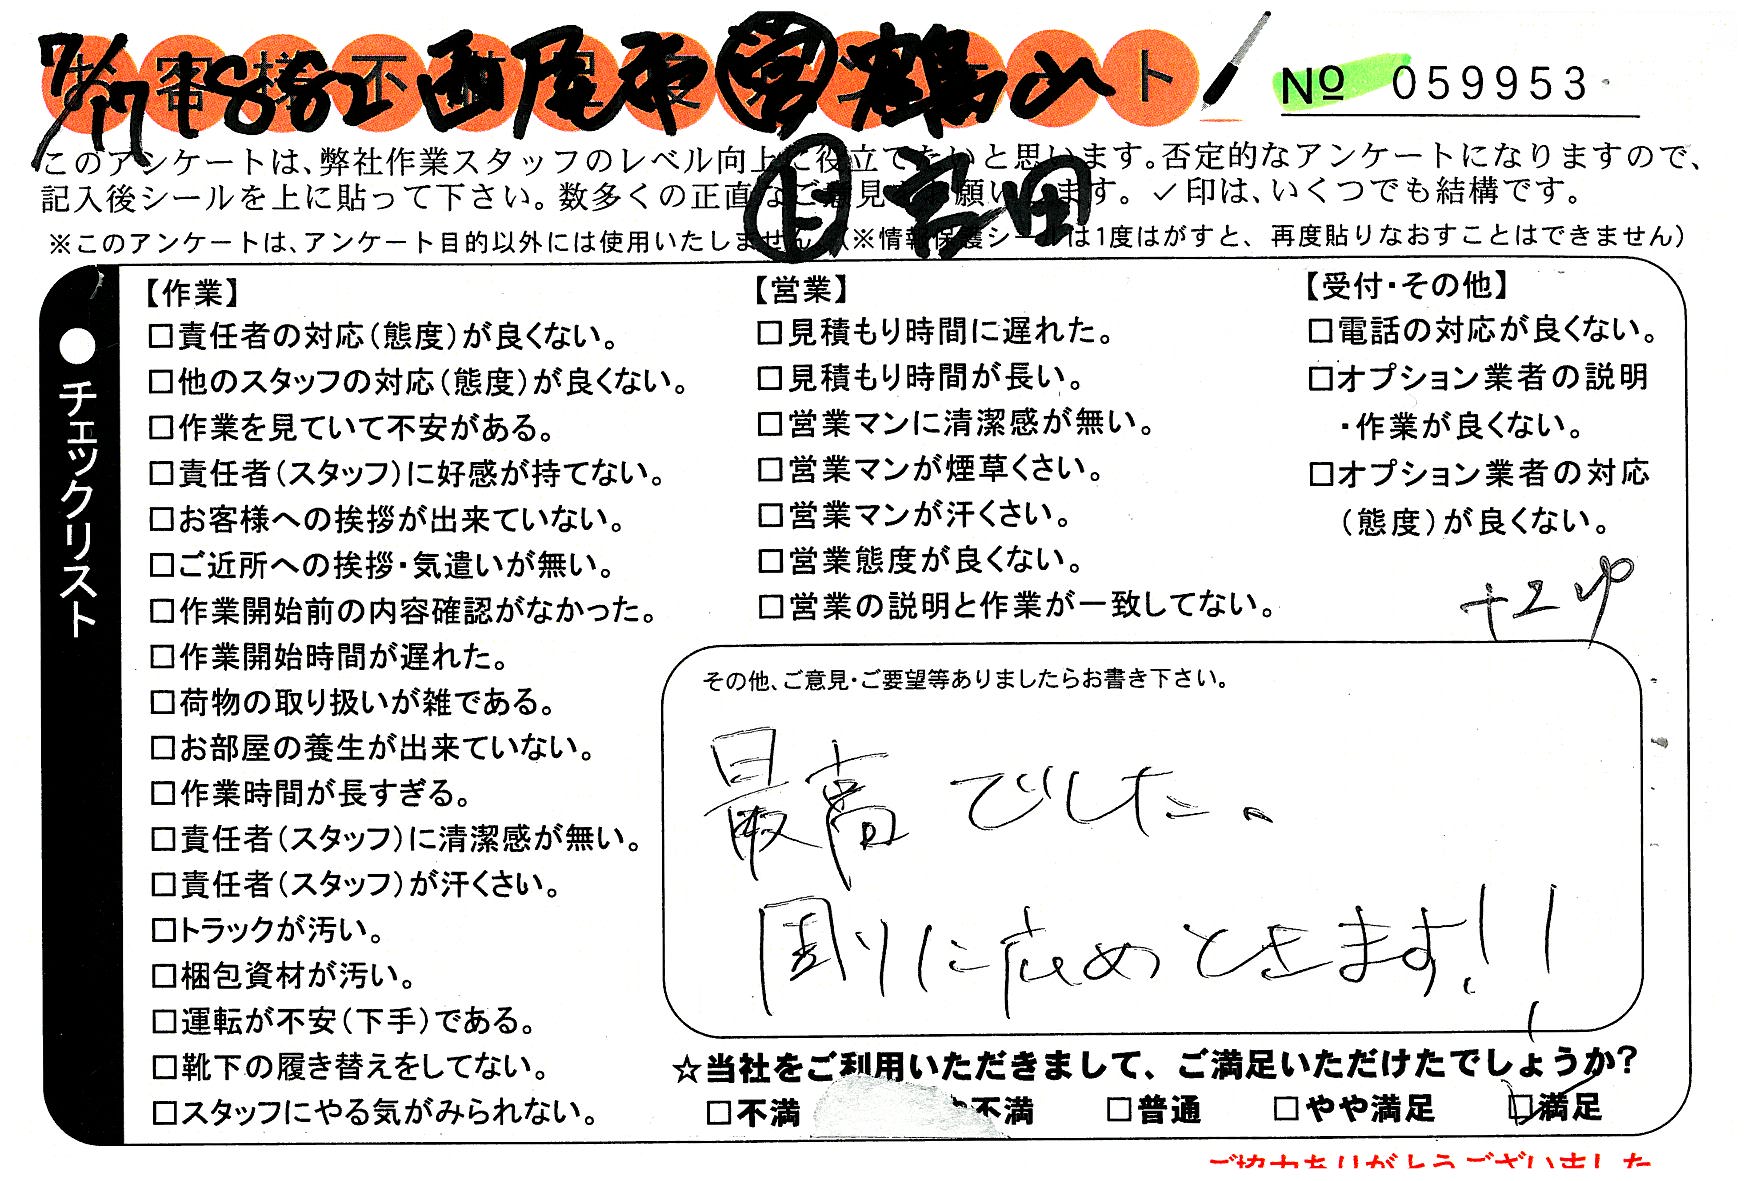 7/17 ₸8882 西尾市 営 鶴山
お客様不満足度アンケート
№ 059953
このアンケートは、弊社作業スタッフのレベル向上に役立てたいと思います。否定的なアンケートになりますので、
記入後シールを上に貼って下さい。数多くの正直なご意見をお願いします。✓印は、いくつでも結構です。
上 宮田
※このアンケートは、アンケート目的以外には使用いたしません。(※情報保護シールは1度はがすと、再度貼りなおすことはできません)
●チェックリスト
【作業】
□責任者の対応(態度)が良くない。
□他のスタッフの対応(態度)が良くない。
□作業を見ていて不安がある。
□責任者(スタッフ)に好感が持てない。
□お客様への挨拶が出来ていない。
□ご近所への挨拶・気遣いが無い。
□作業開始前の内容確認がなかった。
□作業開始時間が遅れた。
□荷物の取り扱いが雑である。
□お部屋の養生が出来ていない。
□作業時間が長すぎる。
□責任者(スタッフ)に清潔感が無い。
□責任者(スタッフ)が汗くさい。
□トラックが汚い。
□梱包資材が汚い。
□運転が不安(下手)である。
□靴下の履き替えをしてない。
□スタッフにやる気がみられない。
【営業】
□見積もり時間に遅れた。
□見積もり時間が長い。
□営業マンに清潔感が無い。
□営業マンが煙草くさい。
□営業マンが汗くさい。
□営業態度が良くない。
□営業の説明と作業が一致してない。
【受付・その他】
□電話の対応が良くない。
□オプション業者の説明
・作業が良くない。
□オプション業者の対応
(態度)が良くない。
+2p
その他、ご意見・ご要望等ありましたらお書き下さい。
最高でした。
周りに広めときます!!
☆当社をご利用いただきまして、ご満足いただけたでしょうか?
□不満 や不満 □普通 □やや満足 ☑満足
ご協力ありがとうございました